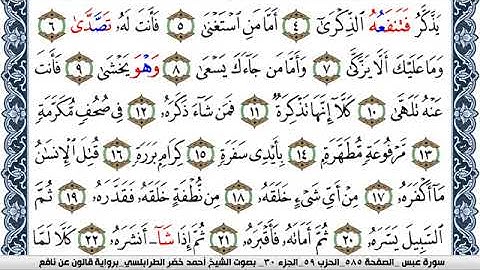 يَذَّكَّرُ فَتَنفَعُهُ الذِّكْرَىٰ ٤ أَمَّا مَنِ اسْتَغْنَىٰ ٥ فَأَنتَ لَهُۥ تَصَّدَّىٰ ٦
وَمَا عَلَيْكَ أَلَّا يَزَّكَّىٰ ٧ وَأَمَّا مَن جَآءَكَ يَسْعَىٰ ٨ وَهْوَ يَخْشَىٰ ٩ فَأَنتَ
عَنْهُ تَلَهَّىٰ ١٠ كَلَّآ إِنَّهَا تَذْكِرَةٌ ١١ فَمَن شَآءَ ذَكَرَهُۥ ١٢ فِي صُحُفٍ مُّكَرَّمَةٍ
١٣ مَّرْفُوعَةٍ مُّطَهَّرَةٍ ١٤ بِأَيْدِي سَفَرَةٍ ١٥ كِرَامٍ بَرَرَةٍ ١٦ قُتِلَ الْإِنسَانُ
مَآ أَكْفَرَهُۥ ١٧ مِنْ أَيِّ شَيْءٍ خَلَقَهُۥ ١٨ مِن نُّطْفَةٍ خَلَقَهُۥ فَقَدَّرَهُۥ ١٩ ثُمَّ
السَّبِيلَ يَسَّرَهُۥ ٢٠ ثُمَّ أَمَاتَهُۥ فَأَقْبَرَهُۥ ٢١ ثُمَّ إِذَا شَآ أَنشَرَهُۥ ٢٢ كَلَّا لَمَّا
سورة عبس_ الصفحة ٥٨٥_ الحزب ٥٩_ الجزء ٣٠_ بصوت الشيخ أحمد خضر الطرابلسي_ برواية قالون عن نافع